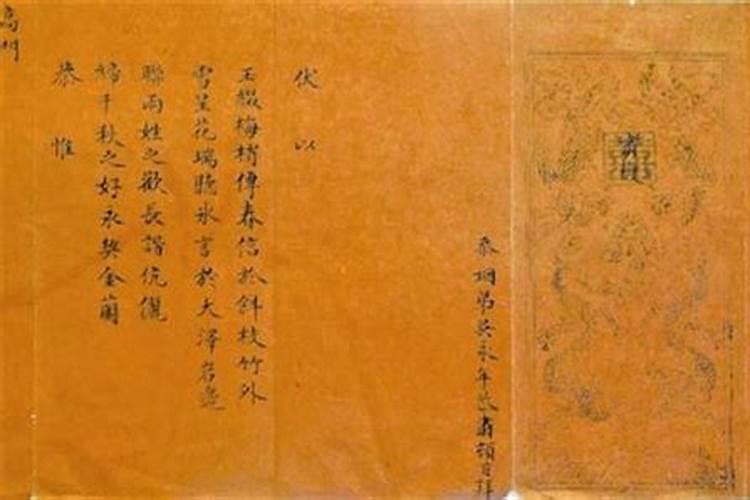 忝姻弟吳永年端肅頓首拜
伏以
玉綴梅梢傳春信於斜枝竹外
雪呈花瑞聽氷言於大澤岩邊
聯兩姓之歡長諧伉儷
締千秋之好永契金蘭
恭惟
高門